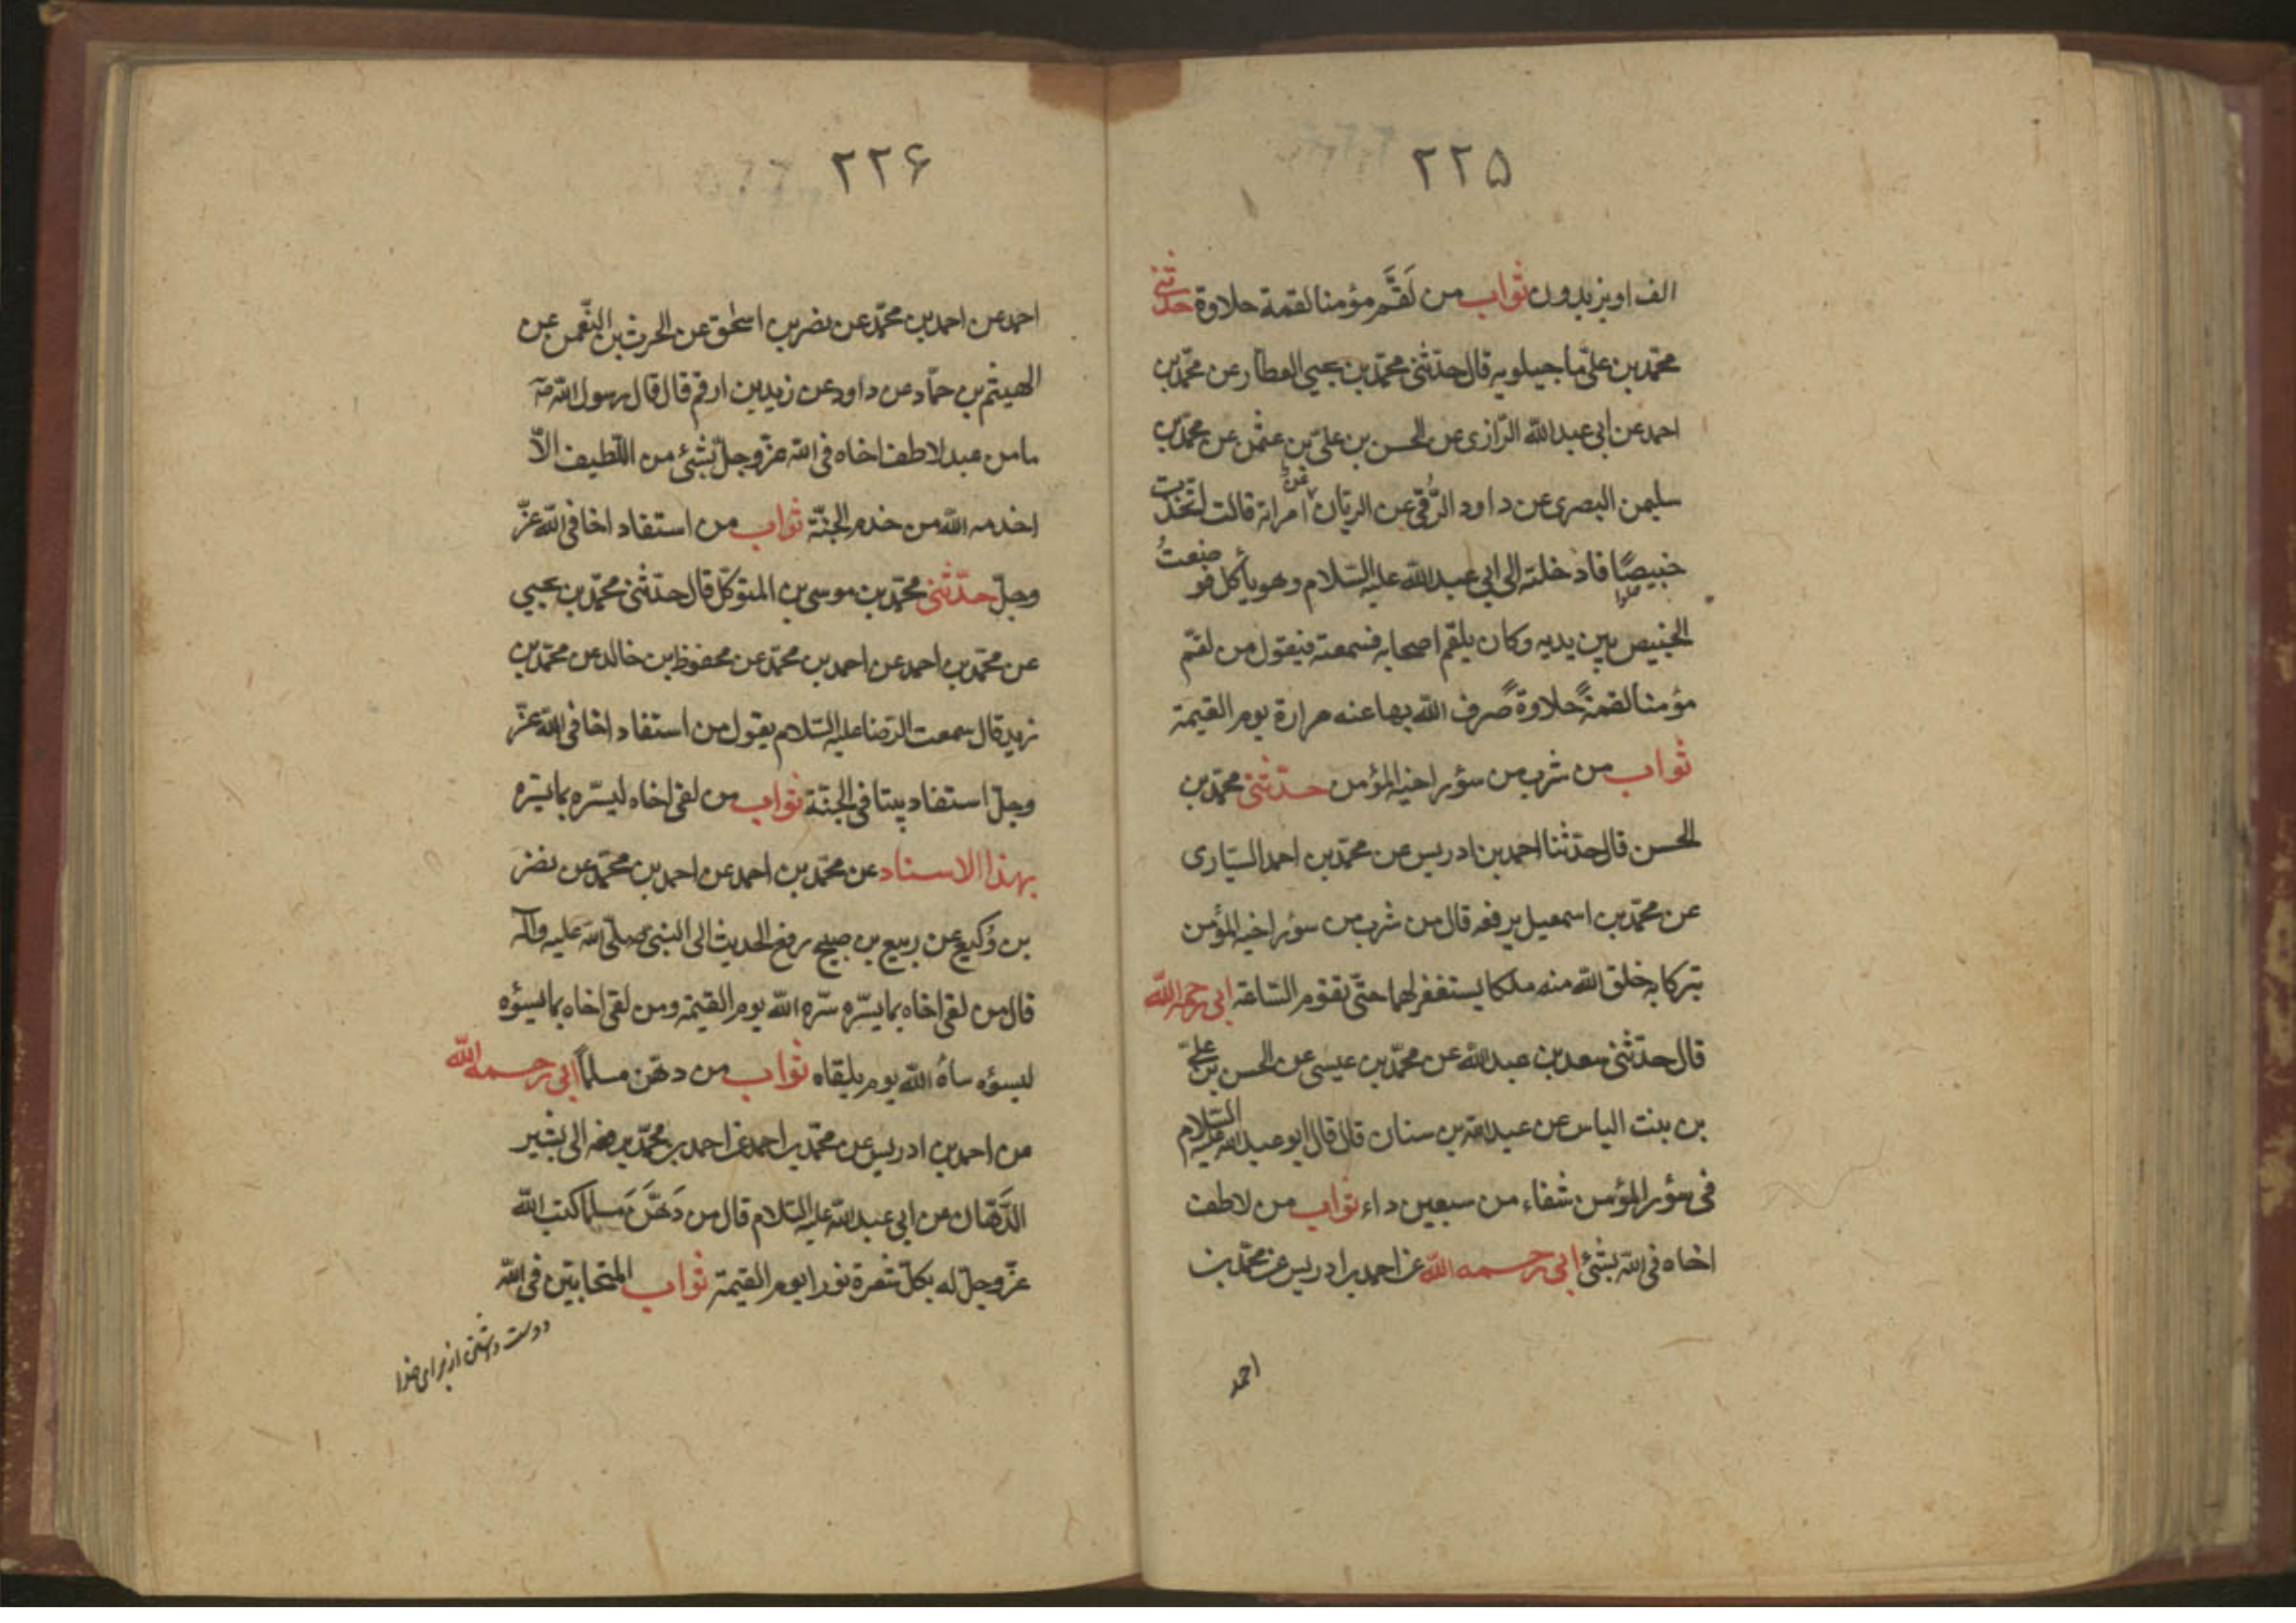 ۲۲۵
الف او يزيدون ثواب من لَقَّم مؤمنا لقمة حلاوة حدّثنى
محمّد بن علىّ ماجيلويه قال حدّثنى محمّد بن يحيى العطار عن محمّد بن
احمد عن ابى عبد الله الرّازى عن الحسن بن علىّ بن عثمن عن محمّد بن
سليمن البصرى عن داود الرّقى عن الريّان عن امراته قالت اتخذت
خبيصًا فادخلته الى ابى عبد الله عليه السّلام وهو يأكل فوضعتُ
الخبيص بين يديه وكان يلقّم اصحابه فسمعته فيقول من لقّم
مؤمنا لقمةً حلاوةً صرف الله بها عنه مرارة يوم القيمة
ثواب من شرب من سؤر اخيه المؤمن حدّثنى محمّد بن
الحسن قال حدّثنا احمد بن ادريس عن محمّد بن احمد السيّارى
عن محمّد بن اسمعيل يرفعه قال من شرب من سؤر اخيه المؤمن
تبركا به خلق الله منه ملكا يستغفر لهما حتّى تقوم السّاعة ابى رحمه الله
قال حدّثنى سعد بن عبد الله عن محمّد بن عيسى عن الحسن بن علىّ
بن بنت الياس عن عبد الله بن سنان قال قال ابو عبد الله عليه السّلام
فى سؤر المؤمن شفاء من سبعين داء ثواب من لاطف
اخاه فى الله بشئ ابى رحمه الله عن احمد بن ادريس عن محمّد بن
احمد
۲۲۶
احمد عن احمد بن محمّد عن نضر بن اسحٰق عن الحرث بن النّعمن عن
الهيثم بن حمّاد عن داود عن زيد بن ارقم قال قال رسول الله صۤ
ما من عبد لاطف اخاه فى الله عزّ وجلّ بشئ من اللّطيف الاّ
اخدمه الله من خدم الجنّة ثواب من استفاد اخا فى الله عزّ
وجلّ حدّثنى محمّد بن موسى بن المتوكّل قال حدّثنى محمّد بن يحيى
عن محمّد بن احمد عن احمد بن محمّد عن محفوظ بن خالد عن محمّد بن
زيد قال سمعت الرّضا عليه السّلام يقول من استفاد اخا فى الله عزّ
وجلّ استفاد بيتا فى الجنّة ثواب من لقى اخاه ليسّره بما يسّره
بهذا الاسناد عن محمّد بن احمد عن احمد بن محمّد عن نضر
بن وُكيع عن ربيع بن صبيح رفع الحديث الى النّبى صلّى الله عليه وآله
قال من لقى اخاه بما يسّره سّره الله يوم القيمة ومن لقى اخاه بما يسؤه
ليسؤه ساءُ الله يوم يلقاه ثواب من دهّن مسلماً ابى رحمه الله
عن احمد بن ادريس عن محمّد بن احمد عن احمد بن محمّد يرفعه الى بشير
الدّهّان عن ابى عبد الله عليه السّلام قال من دَهَّنَ مسلما كتب الله
عزّ وجلّ له بكلّ شعرة نورا يوم القيمة ثواب المتحابّين فى الله
دوست داشتن از براى خدا